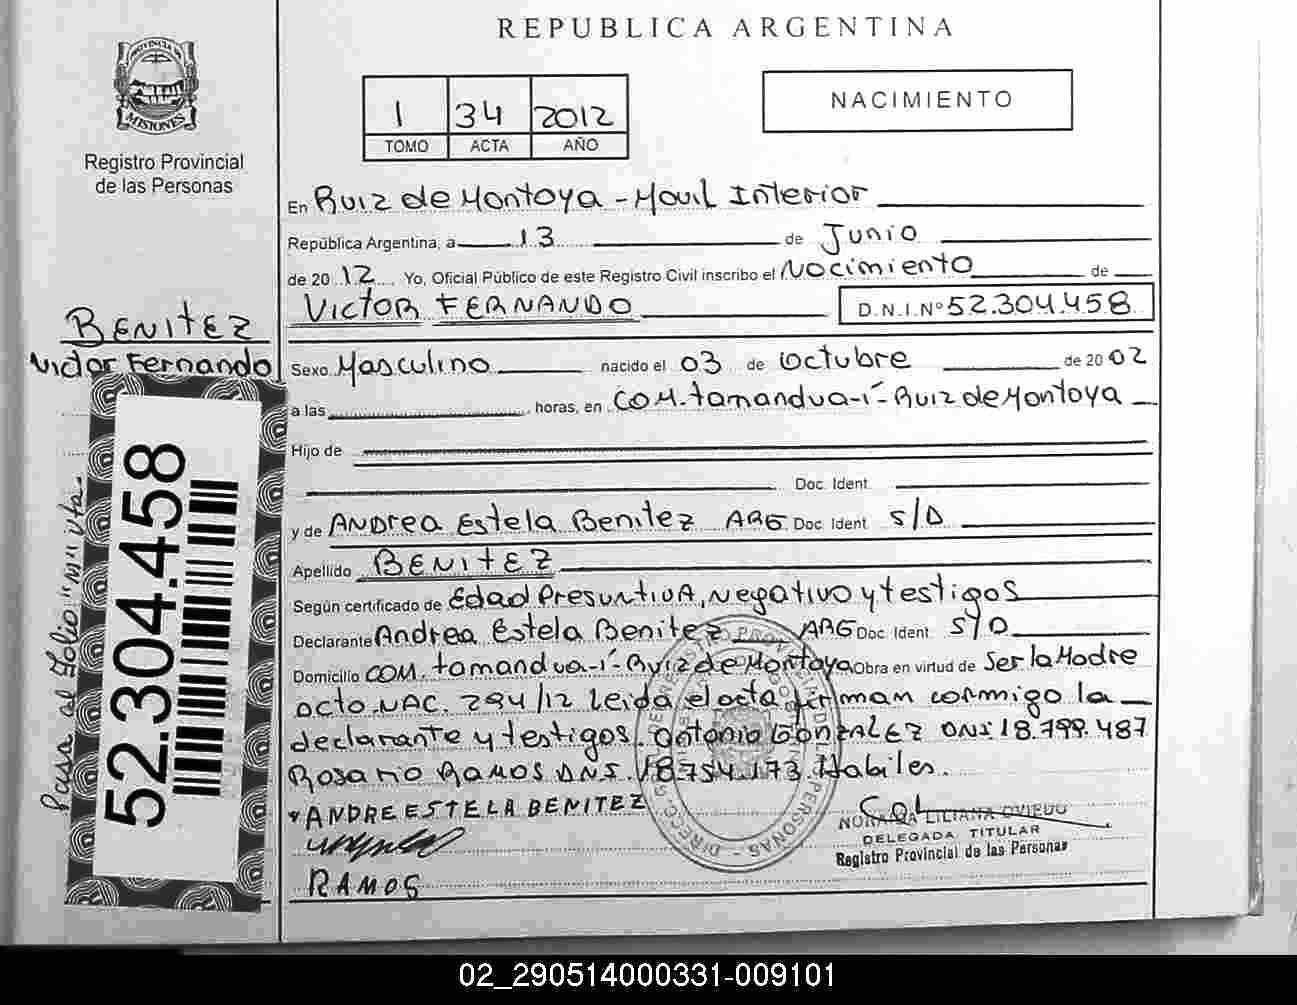 REPUBLICA ARGENTINA
PROVINCIA DE
MISIONES
Registro Provincial
de las Personas
1 34 2012
TOMO ACTA AÑO
NACIMIENTO
En Ruiz de Montoya - Movil Interior
República Argentina, a 13 de Junio
de 20 12 Yo, Oficial Público de este Registro Civil inscribo el Nacimiento de
VICTOR FERNANDO D.N.I.Nº 52.304.458
BENITEZ
Victor Fernando
Sexo Masculino nacido el 03 de Octubre de 20 02
a las horas, en COM. tamandua-í - Ruiz de Montoya
Hijo de
Doc. Ident.
y de ANDrea Estela Benitez ARG Doc. Ident. S/D
Apellido BENITEZ
Según certificado de Edad Presuntiva, Negativo y testigos
Declarante Andrea Estela Benitez ARG Doc. Ident. S/D
Domicilio COM. tamandua-í - Ruiz de Montoya Obra en virtud de Ser la Madre
acto NAC. 294/12 Leida el acta firman conmigo la
declarante y testigos. Antonio GONZALEZ DNI 18.799.487
Rosario RAMOS DNI. 18754.173 Habiles.
ANDRE ESTELA BENITEZ
RAMOS
LILIANA OVIEDO
DELEGADA TITULAR
Registro Provincial de las Personas
Pasa al Folio "N" vta.
52.304.458
02_290514000331-009101